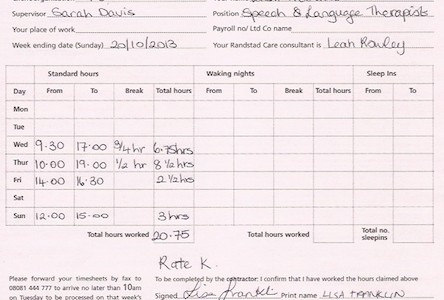 Supervisor Sarah Davis Position Speech & Language Therapists
Your place of work Payroll no/ Ltd Co name
Week ending date (Sunday) 20/10/2013 Your Randstad Care consultant is Leah Rowley
Standard hours Waking nights Sleep Ins
Day From To Break Total hours From To Break Total hours From To
Mon
Tue
Wed 9.30 17.00 3/4 hr 6.75hrs
Thur 10.00 19.00 1/2 hr 8 1/2hrs
Fri 14.00 16.30 2 1/2hrs
Sat
Sun 12.00 15-00 3 hrs
Total hours worked 20.75 Total hours worked Total no. sleepins
Rate K.
Please forward your timesheets by fax to To be completed by the contractor: I confirm that I have worked the hours claimed above
08081 444 777 to arrive no later than 10am
on Tuesday to be processed on that week's Signed Print name LISA FRANKLIN